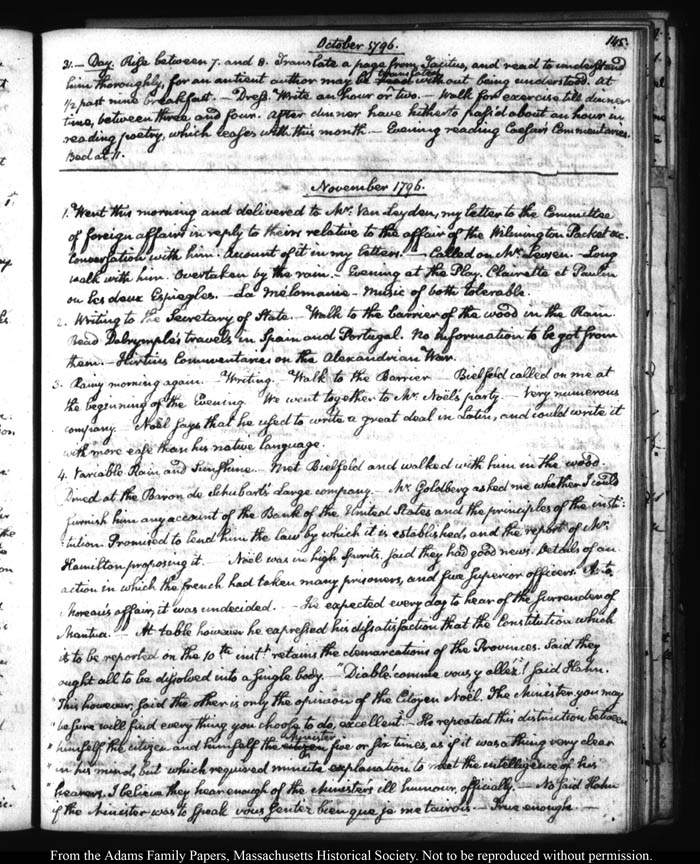 October 1796.
145.
31. — Day. Rise between 7. and 8. Translate a page from Tacitus, and read to understand
him thoroughly, for an antient author may be translated without being understood. At
1/2 past nine breakfast. — Dress. Write an hour or two. — Walk for exercise till dinner
time, between three and four. After dinner have hitherto pass'd about an hour in
reading poetry, which ceases with this month — Evening reading Caesar's Commentaries.
Bed at 11.
November 1796.
1. Went this morning and delivered to Mr. Van Leyden, my letter to the Committee
of foreign affairs in reply to theirs relative to the affair of the Wilmington Packet &c.
Conversation with him. Account of it in my letters. — Called on Mr. Long
walk with him. Overtaken by the rain. — Evening at the Play. Clairette et Paulin
ou les deux Espiegles. — La Mélomanie — Music of both tolerable.
2. Writing to the Secretary of State. — Walk to the barrier of the wood in the Rain.
Read Dalrymple's travels in Spain and Portugal. No information to be got from
them. — Hirtius Commentaries on the Alexandrian War.
3. Rainy morning again. — Writing. Walk to the Barrier Bielfeld called on me at
the beginning of the Evening We went together to Mr. Noël's party. — Very numerous
company. Noël says that he used to write a great deal in Latin, and could write it
with more ease than his native language.
4. Variable Rain and Sunshine. — Met Bielfeld and walked with him in the wood.
Dined at the Baron de Schubart's Large company. — Mr. Goldberg asked me whether I could
furnish him any account of the Bank of the United States and the principles of the insti-
tution Promised to lend him the law by which it is established, and the report of Mr.
Hamilton proposing it. — Noël was in high spirits, said they had good news. Details of an
action in which the french had taken many prisoners, and five superior officers. As to
Moreau's affair, it was undecided. — He expected every day to hear of the surrender of
Mantua. — At table however he expressed his dissatisfaction that the Constitution which
is to be reported on the 10th. inst. retains the demarcations of the Provinces. Said they
ought all to be dissolved into a single body. "Diable! comme vous y allez"! said Hahn.
"This however, said the other is only the opinion of the Citoyen Noël. The Minister you may
"be sure will find every thing you choose to do, excellent — He repeated this distinction between
"himself the citizen and himself the Minister five or six times, as if it was a thing very clear
"in his mind, but which required minute explanation to meet the intelligence of his
"hearers. I believe they hear enough of the Ministers ill humour, officially. — No said Hahn
if the Minister was to speak vous sentez bien que je me tairois — True enough —
From the Adams Family Papers, Massachusetts Historical Society. Not to be reproduced without permission.